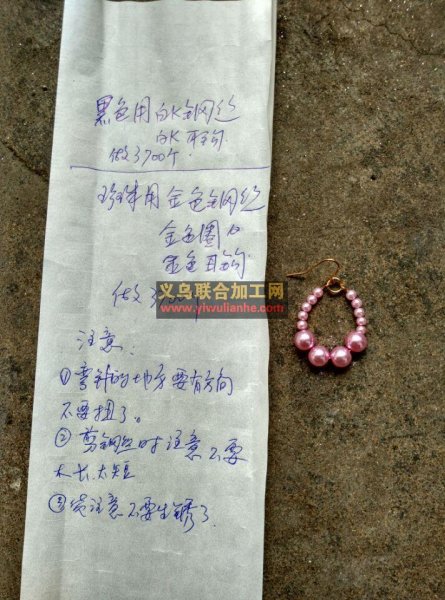 黑色用白K钢丝
白K耳钩
做3700个
珍珠用金色钢丝
金色圈
金色耳钩
做3
义乌联合加工网
www.yiwulianhe.com
注意
①弯针的地方要有方向
不要扭了。
②剪钢丝时注意不要
太长太短
③注意不要生锈了